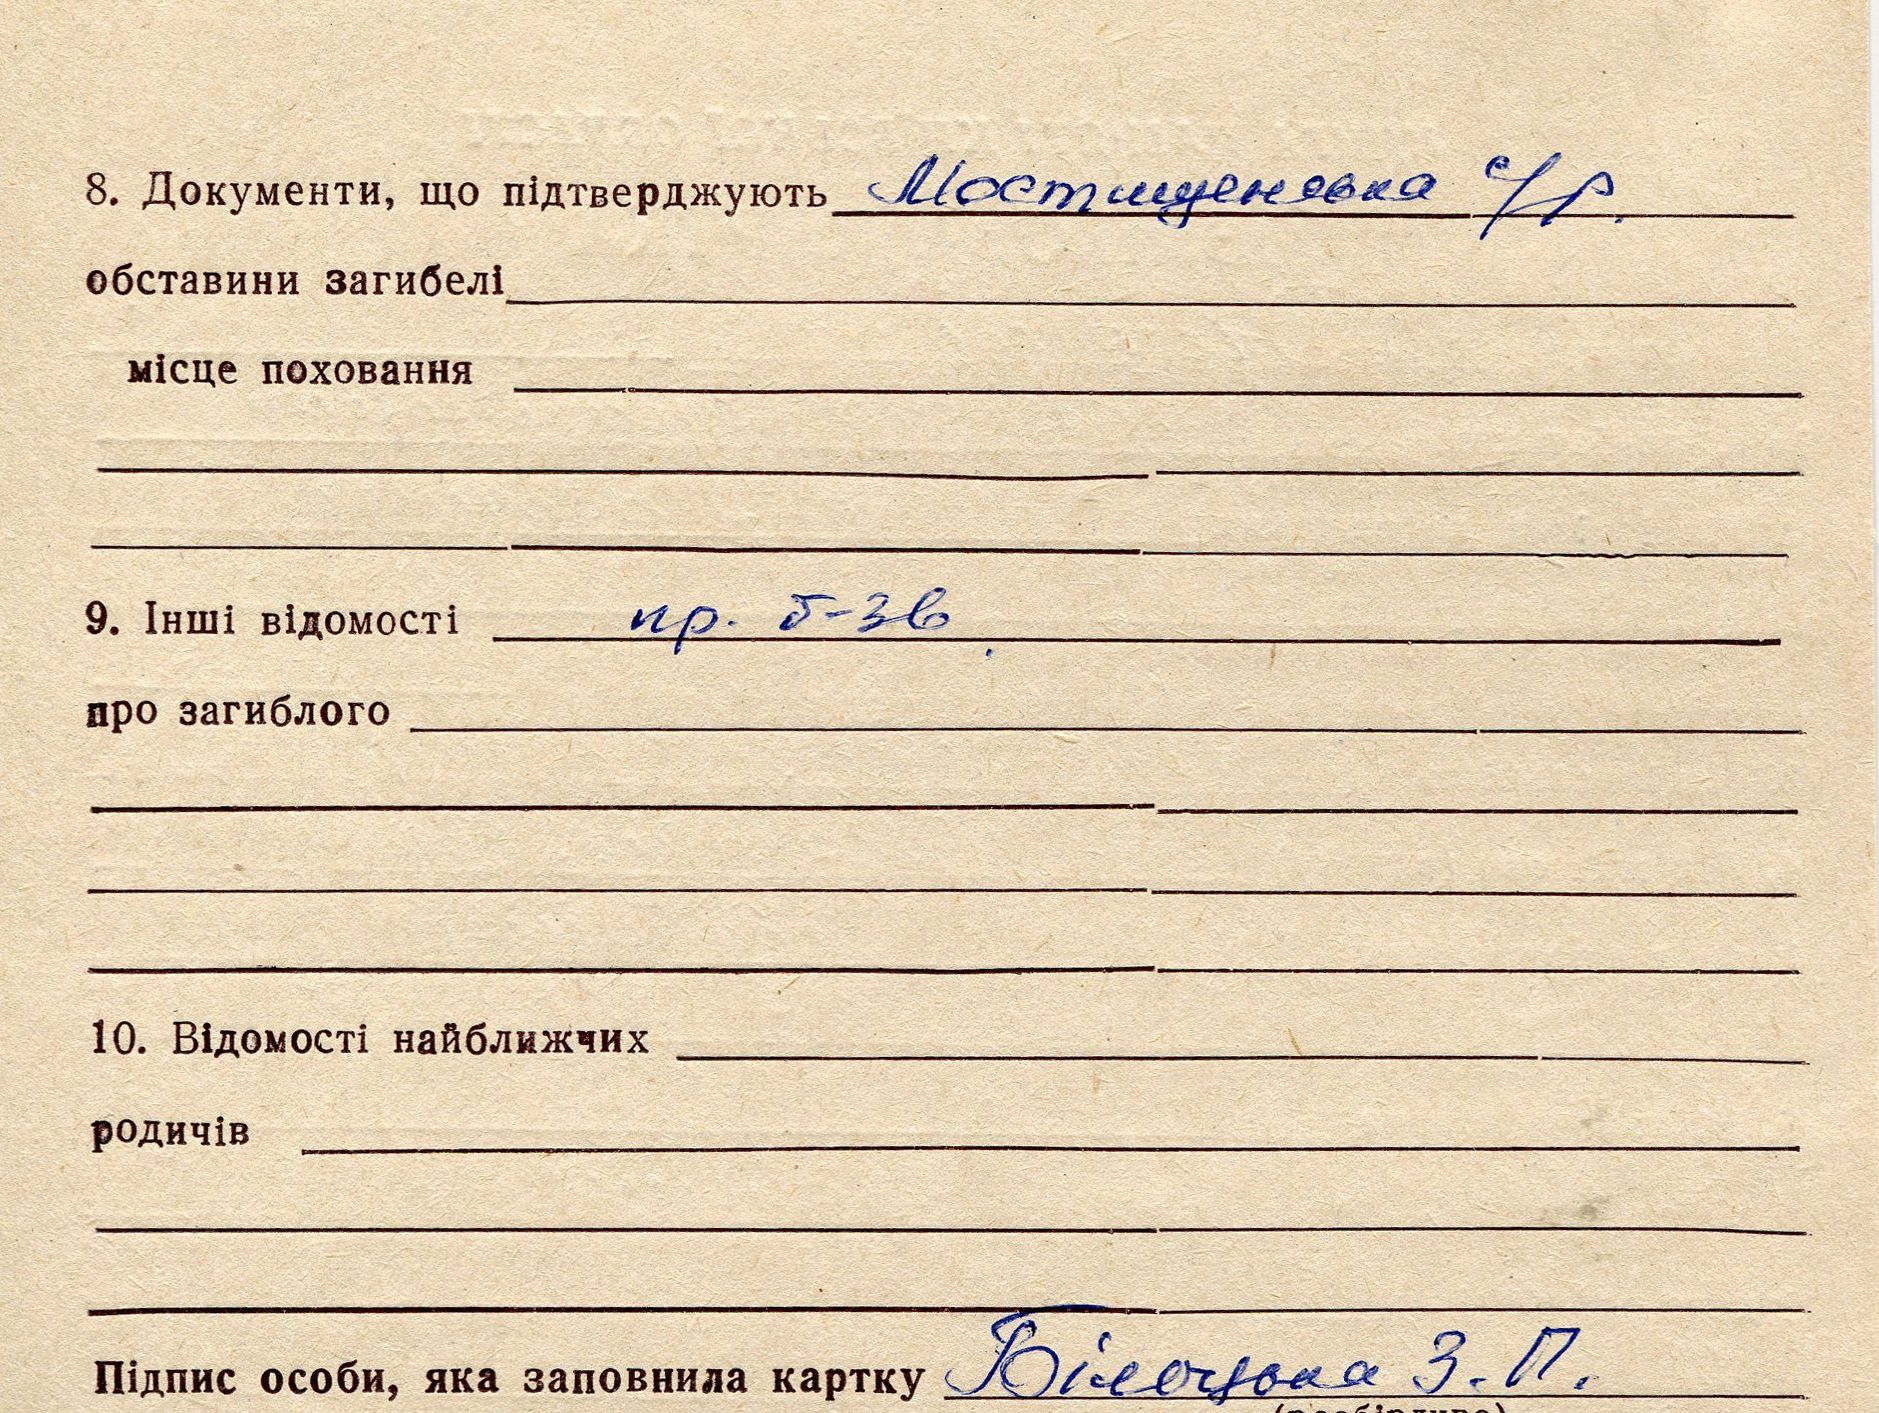 8. Документи, що підтверджують Мостищенська с/р.
обставини загибелі
місце поховання
9. Інші відомості пр. б-зв
про загиблого
10. Відомості найближчих
родичів
Підпис особи, яка заповнила картку Білоцька З. П.
(розбірливо)